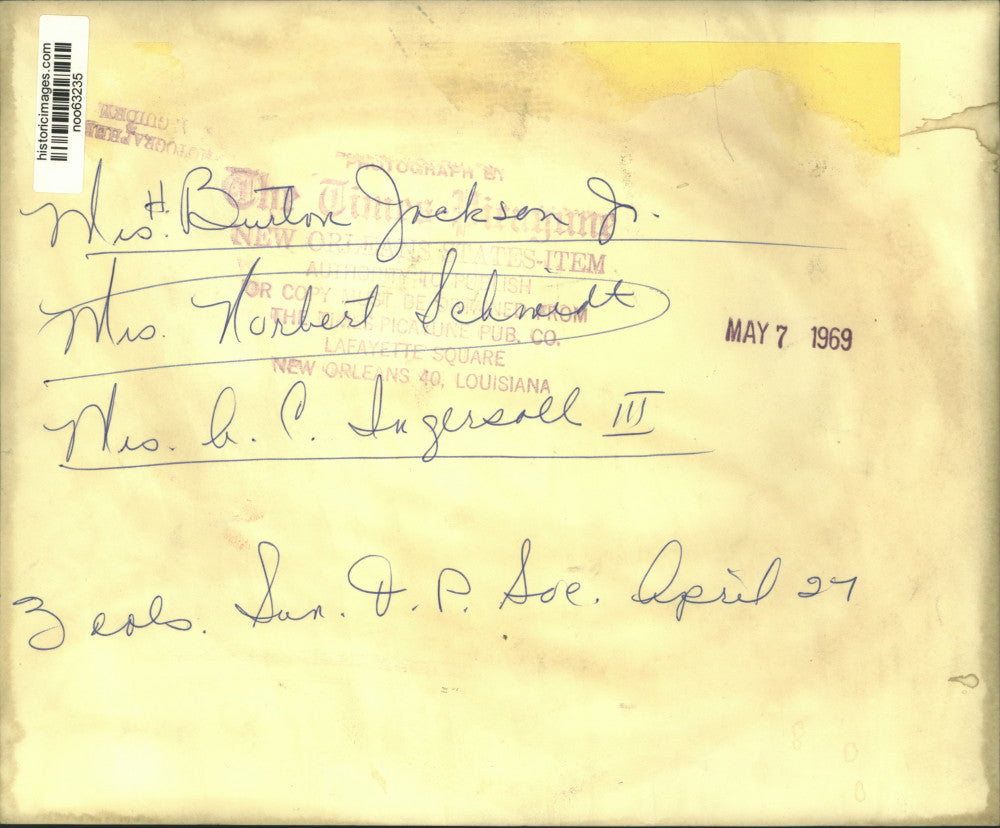 historicimages.com
noo63235
PHOTOGRAPH BY
The Times-Picayune
NEW ORLEANS STATES-ITEM
AUTHORITY TO PUBLISH
OR COPY MUST BE OBTAINED FROM
THE TIMES-PICAYUNE PUB. CO.
LAFAYETTE SQUARE
NEW ORLEANS 40, LOUISIANA
Mrs. H. Burton Jackson Jr.
Mrs. Norbert Schmidt
MAY 7 1969
Mrs. A. C. Ingersoll III
3 cols. Sun. T. P. Soc. April 27